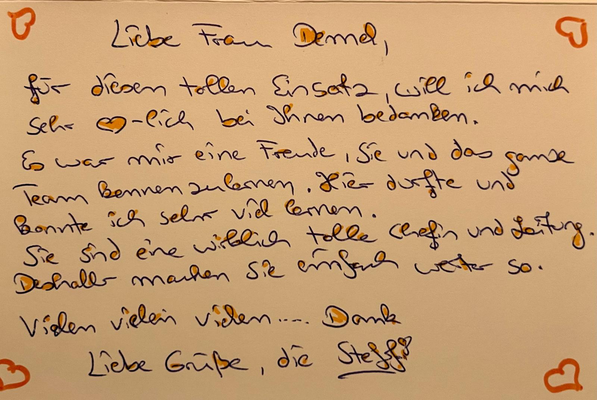 Liebe Frau Demel,
für diesen tollen Einsatz, will ich mich
sehr ♡-lich bei Ihnen bedanken.
Es war mir eine Freude, Sie und das ganze
Team kennenzulernen. Hier durfte und
konnte ich sehr viel lernen.
Sie sind eine wirklich tolle Chefin und Leitung.
Deshalb machen Sie einfach weiter so.
Vielen vielen vielen.... Dank
Liebe Grüße, die Steffi